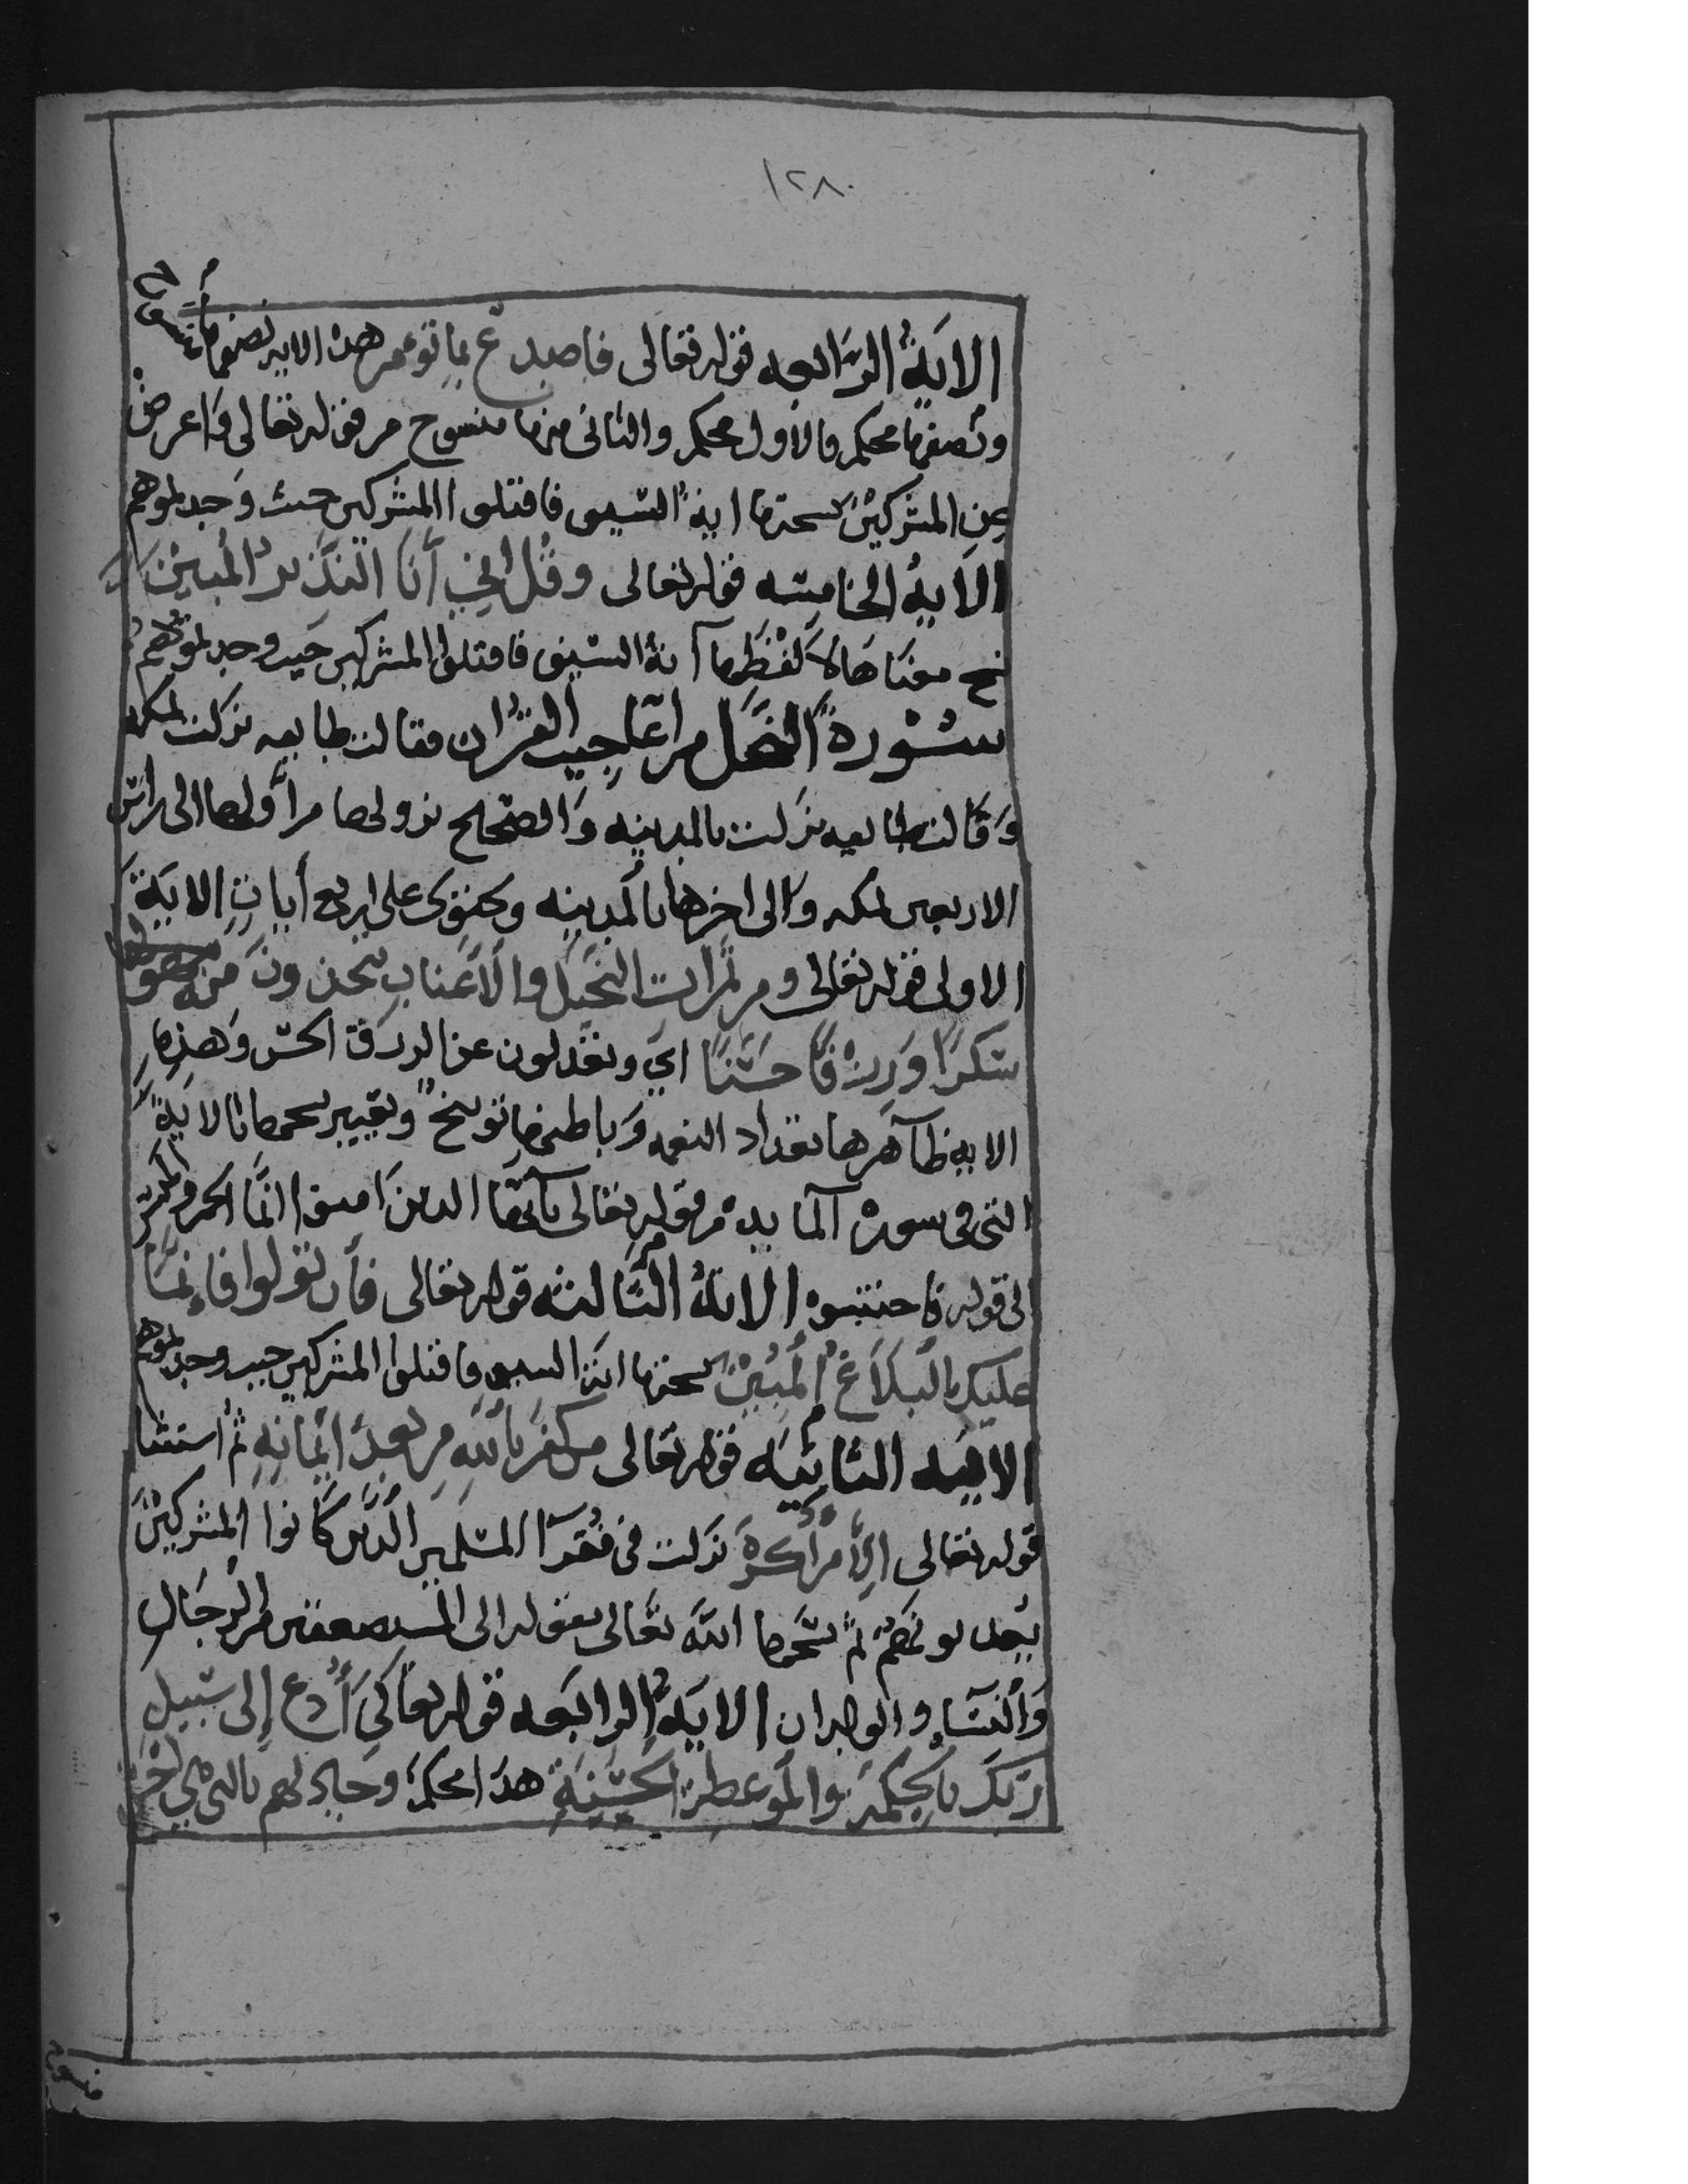 ١٢٨
الاية الرابعه قوله تعالى فاصدع بما تومر هذه الايه نصفها منسوخ
ونصفها محكم فالاول محكم والثانى منها منسوخ من قوله تعالى واعرض
عن المشركين نسختها اية السيف فاقتلوا المشركين حيث وجدتموهم
الاية الخامسه قوله تعالى وقل اني أنا النذير المبين
نسخ معناها لا لفظها آية السيف فاقتلوا المشركين حيث وجدتموهم
سورة النحل من اعاجيب القرآن فقالت طايفه نزلت بمكه
وقالت طايفه نزلت بالمدينه والصحيح نزولها من أولها الى راس
الاربعين بمكه والى اخرها بالمدينه وتحتوى على اربع أيات الاية
الاولى قوله تعالى ومن ثمرات النخيل والأعناب تتخذون منه
سكرا ورزقا حسنا اي وتعدلون عن الرزق الحسن وهذه
الايه ظاهرها تعداد النعمه وباطنها توبيخ وتعيير نسخها بالاية
التى فى سورة المايدة من قوله تعالى يآيها الدين امنوا انما الخمر والميسر
الى قوله فاجتنبوه الاية الثالثه قوله تعالى فأن تولوا فإنما
عليك البلاغ المبين نسختها اية السيف فاقتلوا المشركين حيث وجدتموهم
الايه الثانيه قوله تعالى من كفر بالله من بعد ايمانه ثم استثنا
قوله تعالى إلا من أكره نزلت فى فقرآ المسلمين الذين كانوا المشركين
يعدبونهم ثم نسخها الله تعالى بقوله الى المستضعفين من الرجال
والنسآء والولدان الاية الرابعه قوله تعالى أدع إلى سبيل
ربك بالحكمة والموعظة الحسنة هدا محكم وجادلهم بالتى هي احسن
منسوخ